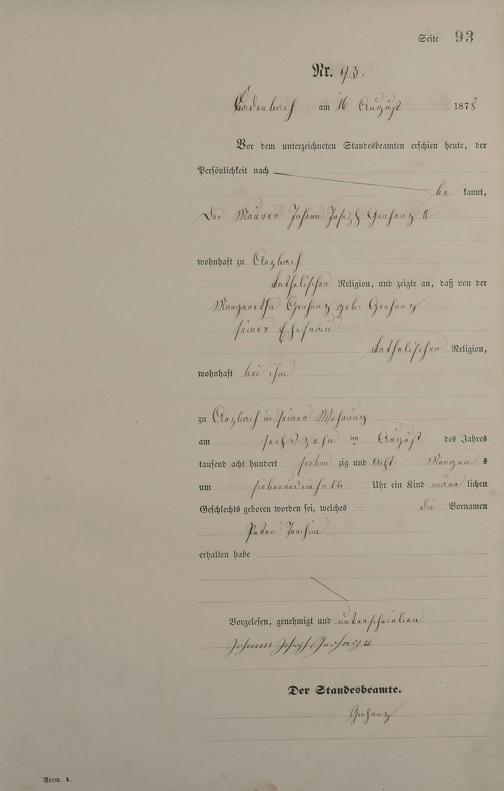 Seite 93
Nr. 93.
am 16 August 1878
Vor dem unterzeichneten Standesbeamten erschien heute, der
Persönlichkeit nach
be kannt,
Der Maurer Johann Joseph Gerharz II
wohnhaft zu Arzbach
katholischer Religion, und zeigte an, daß von der
Margaretha Gerharz geb. Gerharz
seiner Ehefrau
katholischer Religion,
wohnhaft bei ihm
zu Arzbach in seiner Wohnung
am sechszehn ten August des Jahres
tausend acht hundert sieben zig und acht Morgen s
um siebenundeinhalb Uhr ein Kind männ lichen
Geschlechts geboren worden sei, welches die Vornamen
Peter Joachim
erhalten habe
Vorgelesen, genehmigt und unterschrieben
Johann Joseph Gerharz II
Der Standesbeamte.
Gerharz
Form. A.